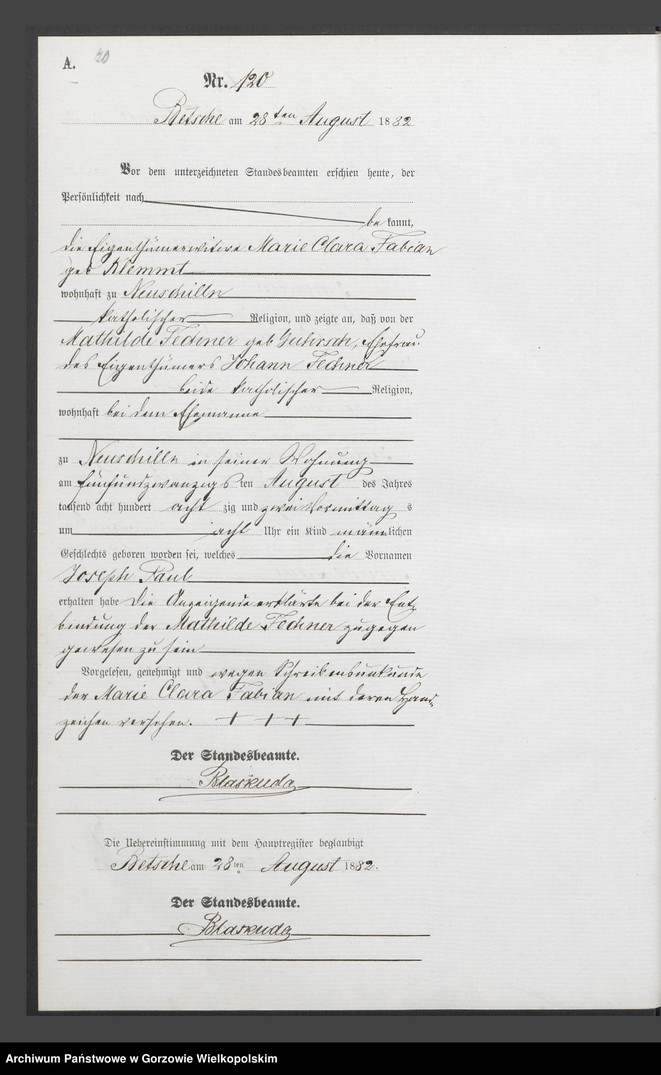 A. 20
Nr. 120
Betsche am 28ten August 1882
Vor dem unterzeichneten Standesbeamten erschien heute, der
Persönlichkeit nach
bekannt,
die Eigenthümerwitwe Marie Clara Fabian
geb Klemmt
wohnhaft zu Neuschilln
katholischer Religion, und zeigte an, daß von der
Mathilde Fechner geb , Ehefrau
des Eigenthümers Johann Fechner
beide katholischer Religion,
wohnhaft bei dem Ehemanne
zu Neuschilln in seiner Wohnung
am fünfundzwanzigsten August des Jahres
tausend acht hundert achtzig und zwei Vormittags
um acht Uhr ein Kind männlichen
Geschlechts geboren worden sei, welches die Vornamen
Joseph Paul
erhalten habe Die Anzeigende erklärte bei der Ent
bindung der Mathilde Fechner zugegen
gewesen zu sein
Vorgelesen, genehmigt und wegen Schreibensunkunde
der Marie Clara Fabian mit deren Hand
zeichen versehen. + + +
Der Standesbeamte.
Blaskuda
Die Uebereinstimmung mit dem Hauptregister beglaubigt
Betsche am 28ten August 1882.
Der Standesbeamte.
Blaskuda
Archiwum Państwowe w Gorzowie Wielkopolskim